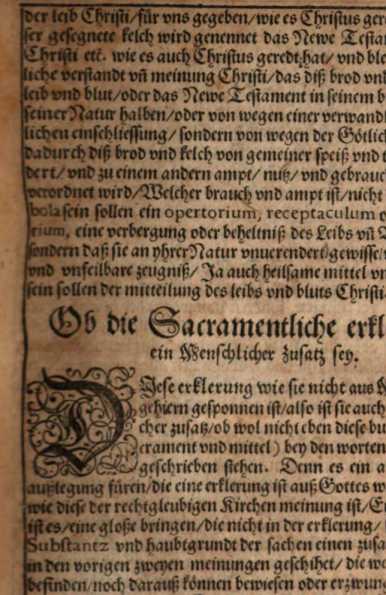 der leib Christi/für vns gegeben/wie es Christus ger
ser gesegnete kelch wird genennet das Newe Testa
Christi etc. wie es auch Christus geredt hat/ vnd ble
liche verstandt vñ meinung Christi/das diß brod vnd
leib vnd blut/oder das Newe Testament in seinem b
seiner Natur halben/oder von wegen einer verwand
lichen einschliessung/ sondern von wegen der Götlic
dadurch diß brod vnd kelch von gemeiner speiß vnd t
dert/ vnd zu einem andern ampt/ nutz/ vnd gebrauc
verordnet wird/Welcher brauch vnd ampt ist/nicht
sein sollen ein opertorium, receptaculum o
rium, eine verbergung oder beheltniß des Leibs vñ
sondern daß sie an yhrer Natur vnuerendert/gewisse
vnd vnfeilbare zeugniß/ Ja auch heilsame mittel vn
sein sollen der mitteilung des leibs vnd bluts Christi
Ob die Sacramentliche erkl
ein Menschlicher zusatz sey.
DIese erklerung wie sie nicht aus
gehiern gesponnen ist/also ist sie auch
cher zusatz/ob wol nicht eben diese bu
crament vnd mittel) bey den worten
geschrieben stehen. Denn es ein a
außlegung füren/die eine erklerung ist auß Gottes w
wie diese der rechtgleubigen Kirchen meinung ist/
ist es/eine gloße bringen/die nicht in der erklerung/
Substantz vnd haubtgrundt der sachen einen zusa
in den vorigen zweyen meinungen geschihet/ die we
befinden/noch darauß können bewiesen oder erzwun